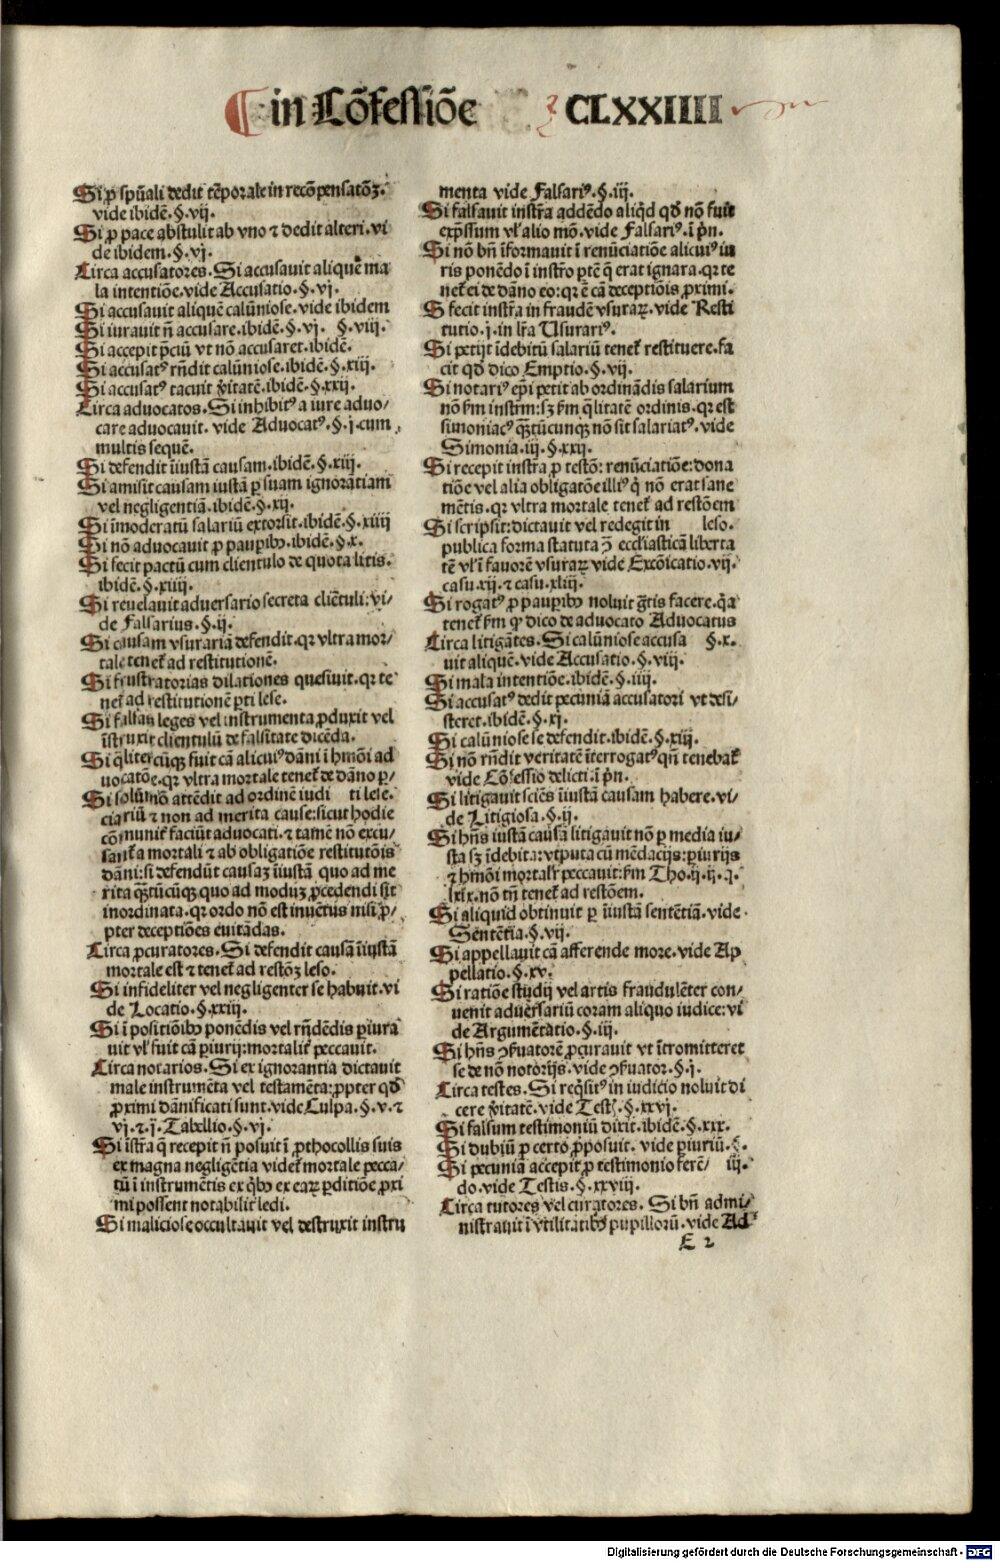 in Cōfessiōe CLXXIIII
Si ꝓ spūali dedit tēporale in recōpensatōꝫ.
vide ibidē.§.vij.
Si ꝓ pace abstulit ab vno ⁊ dedit alteri.vi
de ibidem.§.vj.
Circa accusatores.Si accusauit aliquē ma
la intentiōe.vide Accusatio.§.vj.
Si accusauit aliquē calūniose.vide ibidem
Si iurauit n̄ accusare.ibidē.§.vj. §.viij.
Si accepit p̄ciū vt nō accusaret.ibidē.
Si accusatꝰ rn̄dit calūniose.ibidē.§.xiij.
Si accusatꝰ tacuit v̄itatē.ibidē.§.xxij.
Circa aduocatos.Si inhibitꝰ a iure aduo/
care aduocauit. vide Aduocatꝰ.§.j.cum
multis sequē.
Si defendit īiustā causam.ibidē.§.xiij.
Si amisit causam iustā ꝑ suam ignorātiam
vel negligentiā.ibidē.§.xij.
Si īmoderatū salariū extorsit.ibidē.§.xiiij
Si nō aduocauit ꝓ pauꝑibꝫ.ibidē.§.x.
Si fecit pactū cum clientulo de quota litis.
ibidē.§.xiiij.
Si reuelauit aduersario secreta cliētuli:vi/
de Falsarius.§.ij.
Si causam vsurariā defendit.qꝛ vltra mor/
tale tenet̄ ad restitutionē.
Si frustratorias dilationes quesiuit.qꝛ te
net̄ ad restitutionē ꝑti lese.
Si falsas leges vel instrumenta ꝓduxit vel
īstruxit clientulū de falsitate dicēda.
Si q̄litercūqꝫ fuit cā alicuiꝰ dāni ī hmōi ad
uocatōe.qꝛ vltra mortale tenet̄ de dāno ꝑ/
Si solū nō attēdit ad ordinē iudi ti lese.
ciariū ⁊ non ad merita cause:sicut hodie
cōmunit̄ faciūt aduocati.⁊ tamē nō excu/
sant̄ a mortali ⁊ ab obligatiōe restitutōis
dāni:si defendūt causaꝫ īiustā quo ad me
rita qꝫtūcūqꝫ quo ad moduꝫ ꝓcedendi sit
inordinata.qꝛ ordo nō est inuētus nisi ꝓ/
pter deceptiōes euitādas.
Circa ꝓcuratores.Si defendit causā īiustā
mortale est ⁊ tenet̄ ad restōꝫ leso.
Si infideliter vel negligenter se habuit.vi
de Locatio.§.xxiij.
Si ī positiōibꝫ ponēdis vel rn̄dēdis ꝑiura
uit vl̓ fuit cā ꝑiurij:mortalit̄ peccauit.
Circa notarios.Si ex ignorantia dictauit
male instrumēta vel testamēta:ꝓpter qd̓
ꝓximi dānificati sunt.vide Culpa.§.v.⁊
vj.⁊.j.Tabellio.§.vj.
Si īstr̄a q̄ recepit n̄ posuit ī ꝓthocollis suis
ex magna negligētia videt̄ mortale pecca/
tū ī instrumētis ex qͥbꝫ ex eaꝝ ꝑditiōe ꝓxi
mi possent notabilit̄ ledi.
Si maliciose occultauit vel destruxit instru
menta vide Falsariꝰ.§.iij.
Si falsauit instr̄a addēdo aliqͥd qd̓ nō fuit
exp̄ssum vl̓ alio mō.vide Falsariꝰ.ī pn̄.
Si nō bn̄ īformauit ī renūciatiōe alicuiꝰ iu
ris ponēdo ī instr̄o ꝑtē q̄ erat ignara.qꝛ te
net̄ ei de dāno eo:qꝛ ē cā deceptiōis ꝓximi.
Si fecit instr̄a in fraudē vsuraꝝ.vide Resti
tutio.j.in lr̄a Usurariꝰ.
Si petijt īdebitū salariū tenet̄ restituere.fa
cit qd̓ dico Emptio.§.vij.
Si notariꝰ ep̄i petit ab ordinādis salarium
nō ẜm instrm̄:sꝫ ẜm q̄litatē ordinis.qꝛ est
simoniacꝰ qꝫtūcunqꝫ nō sit salariatꝰ.vide
Simonia.iij.§.xxij.
Si recepit instr̄a ꝓ testō:renūciatiōe:dona
tiōe vel alia obligatōe illiꝰ qͥ nō erat sane
mētis.qꝛ vltra mortale tenet̄ ad restōem
Si scripsit:dictauit vel redegit in leso.
publica forma statuta ꝯ̄ eccl̓iasticā liberta
tē vl̓ ī fauorē vsuraꝝ vide Excōicatio.vij.
casu.xij.⁊ casu.xliij.
Si rogatꝰ ꝓ pauꝑibꝫ noluit gr̄tis facere.qꝛ
tenet̄ ẜm ꝙ dico de aduocato Aduocatus
Circa litigātes.Si calūniose accusa §.x.
uit aliquē.vide Accusatio.§.viij.
Si mala intentiōe.ibidē.§.iiij.
Si accusatꝰ dedit pecuniā accusatori vt desi/
steret.ibidē.§.xj.
Si calūniose se defendit.ibidē.§.xiij.
Si nō rn̄dit veritatē īterrogatꝰ qn̄ tenebat̄
vide Cōfessio delicti.ī pn̄.
Si litigauit sciēs īiustā causam habere.vi/
de Litigiosa.§.ij.
Si hn̄s iustā causā litigauit nō ꝑ media iu/
sta sꝫ īdebita:vtputa cū mēdacijs:ꝑiurijs
⁊ hmōi mortalr̄ peccauit:ẜm Tho.ij.ij.q.
lxix.nō tn̄ tenet̄ ad restōem.
Si aliquid obtinuit ꝑ īiustā sentētiā.vide
Sentētia.§.vij.
Si appellauit cā afferende more.vide Ap
pellatio.§.xv.
Si ratiōe studij vel artis fraudulēter con/
uenit aduersariū coram aliquo iudice:vi
de Argumētatio.§.iij.
Si hn̄s ꝯẜuatorē ꝓcurauit vt ītromitteret
se de nō notorijs.vide ꝯẜuator.§.j.
Circa testes.Si reqͥsitꝰ in iudicio noluit di
cere v̄itatē.vide Test̓.§.xxvj.
Si falsum testimoniū dixit.ibidē.§.xxx.
Si dubiū ꝑ certo ꝓposuit. vide ꝑiuriū.§.
Si pecuniā accepit ꝓ testimonio ferē/ iij.
do.vide Testis.§.xxviij.
Circa tutores vel curatores. Si bn̄ admi/
nistrauit ī vtilitatibꝫ pupilloꝝ.vide Ad
E 2
Digitalisierung gefördert durch die Deutsche Forschungsgemeinschaft - DFG